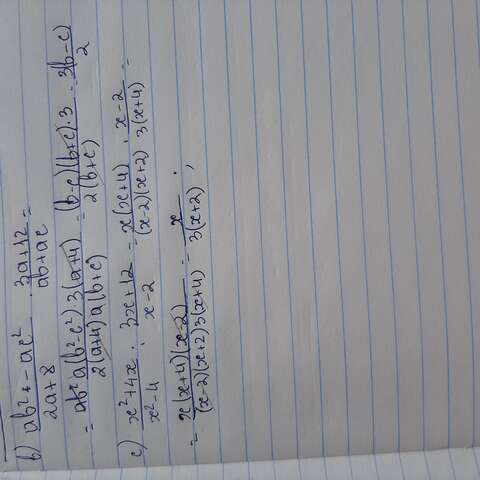 b) (ab² - ac²)/(2a+8) · (3a+12)/(ab+ac) =
= (ab² a(b²-c²) 3(a+4))/(2(a+4)a(b+c)) = ((b-c)(b+c)·3)/(2(b+c)) = (3(b-c))/2
c) (x²+4x)/(x²-4) : (3x+12)/(x-2) = (x(x+4))/((x-2)(x+2)) · (x-2)/(3(x+4)) =
= (x(x+4)(x-2))/((x-2)(x+2)3(x+4)) = x/(3(x+2)) ;